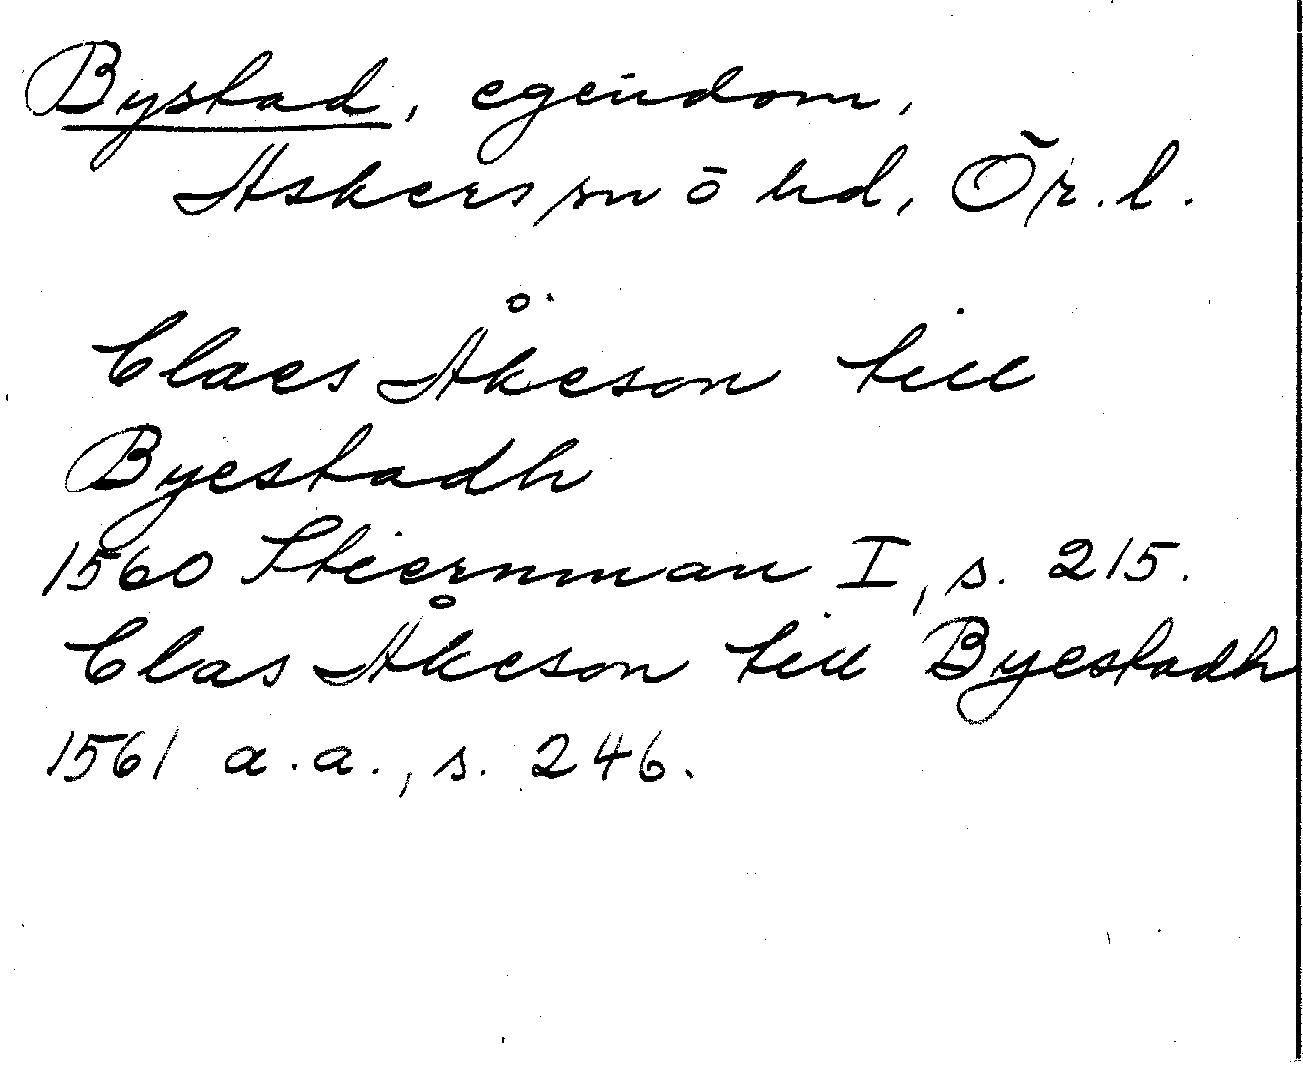 Bystad, egendom,
Askers sn o hd, Ör. l.
Claes Åkeson till
Byestadh
1560 Stiernman I, s. 215.
Clas Åkeson till Byestadh
1561 a.a., s. 246.